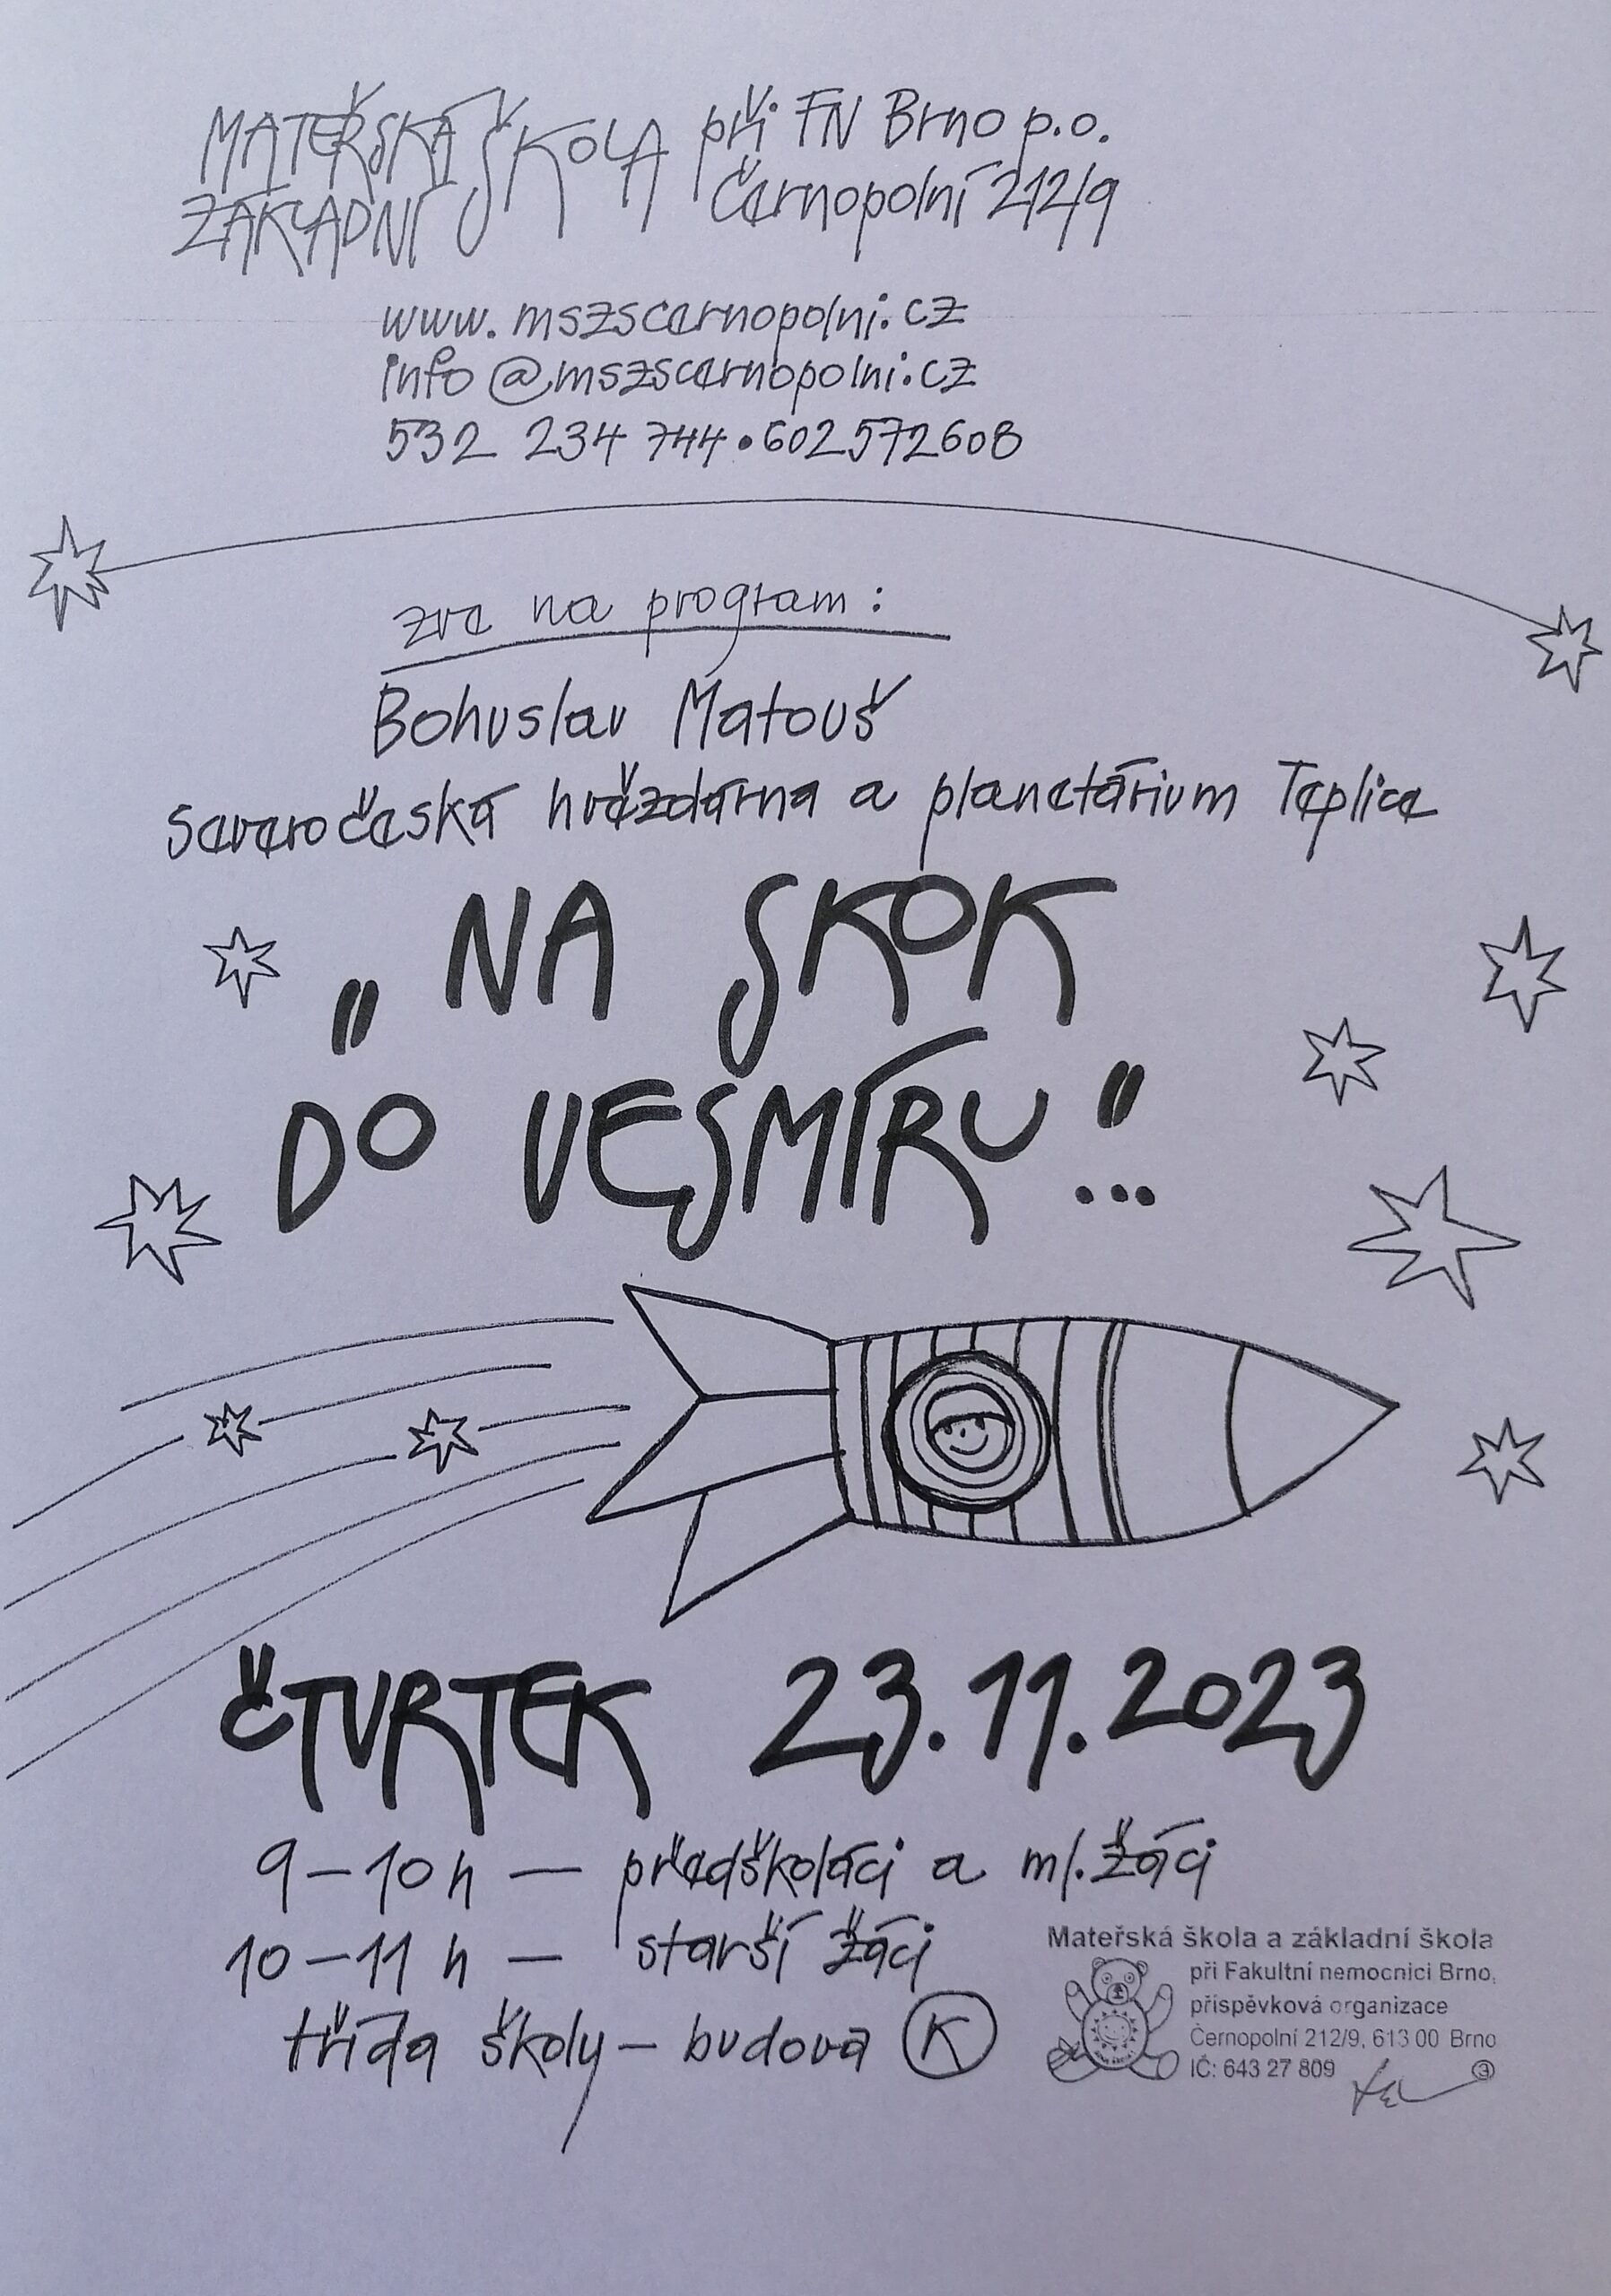 MATEŘSKÁ ZÁKLADNÍ ŠKOLA při FN Brno p.o.
Černopolní 212/9
www.mszscernopolni.cz
info@mszscernopolni.cz
532 234 744 • 602572608
zve na program:
Bohuslav Matouš
Severočeská hvězdárna a planetárium Teplice
„NA SKOK
DO VESMÍRU"...
ČTVRTEK 23.11.2023
9-10 h — předškoláci a ml. žáci
10-11 h — starší žáci
třída školy - budova K
Mateřská škola a základní škola
při Fakultní nemocnici Brno,
příspěvková organizace
Černopolní 212/9, 613 00 Brno
IČ: 643 27 809 3